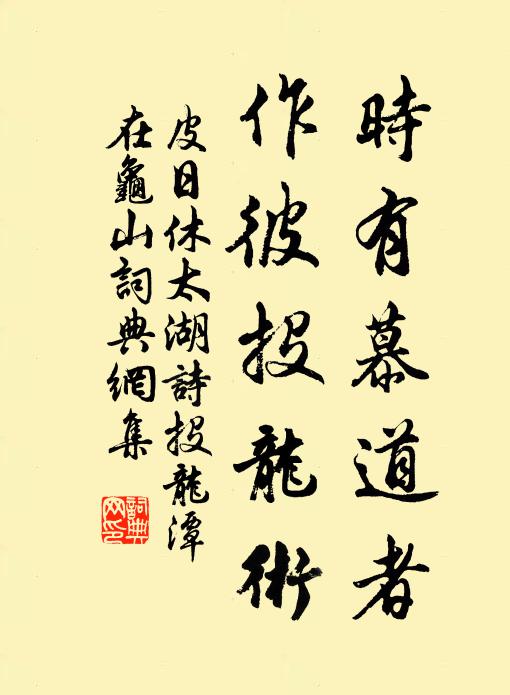 時有慕道者
作彼投龍術
皮日休太湖詩投龍潭
在龜山詞典網集
詞典網印